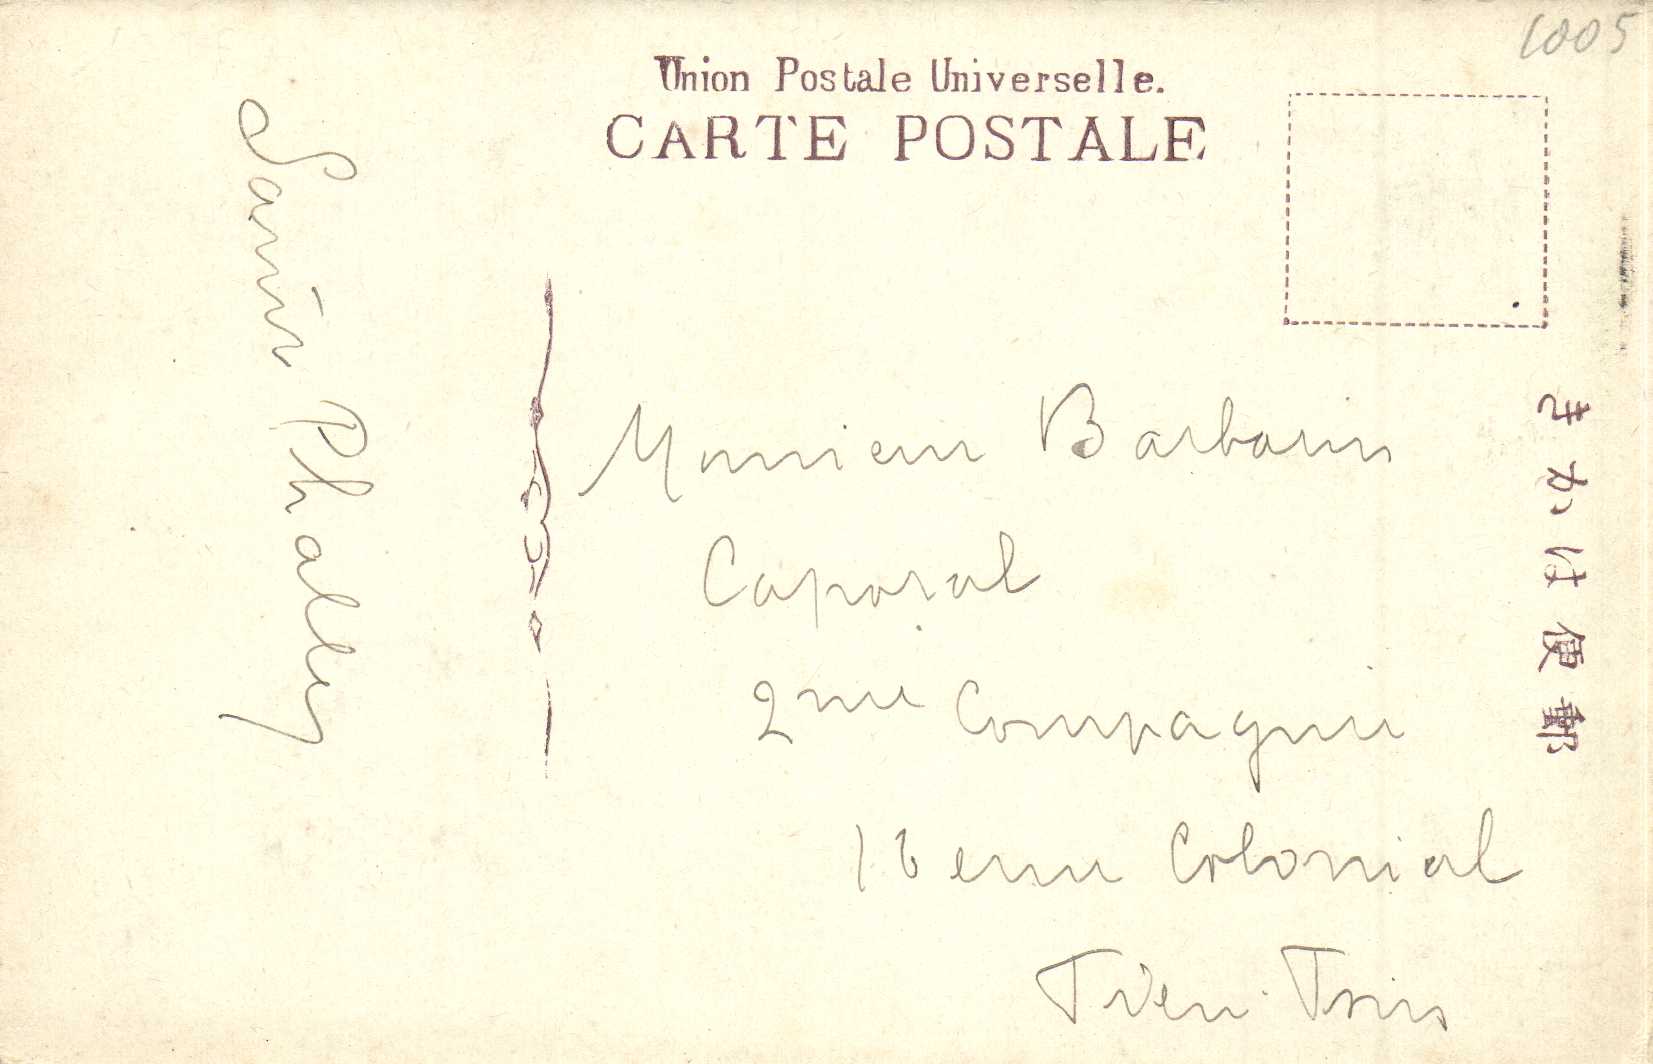 1005
Union Postale Universelle.
CARTE POSTALE
きかは便郵
Monsieur Barbarin
Caporal
2me Compagnie
16eme Colonial
Tien-Tsin